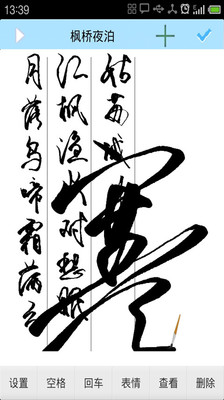 13:39
枫桥夜泊
月落乌啼霜满天
江枫渔火对愁眠
姑苏城
寒
设置 空格 回车 表情 查看 删除